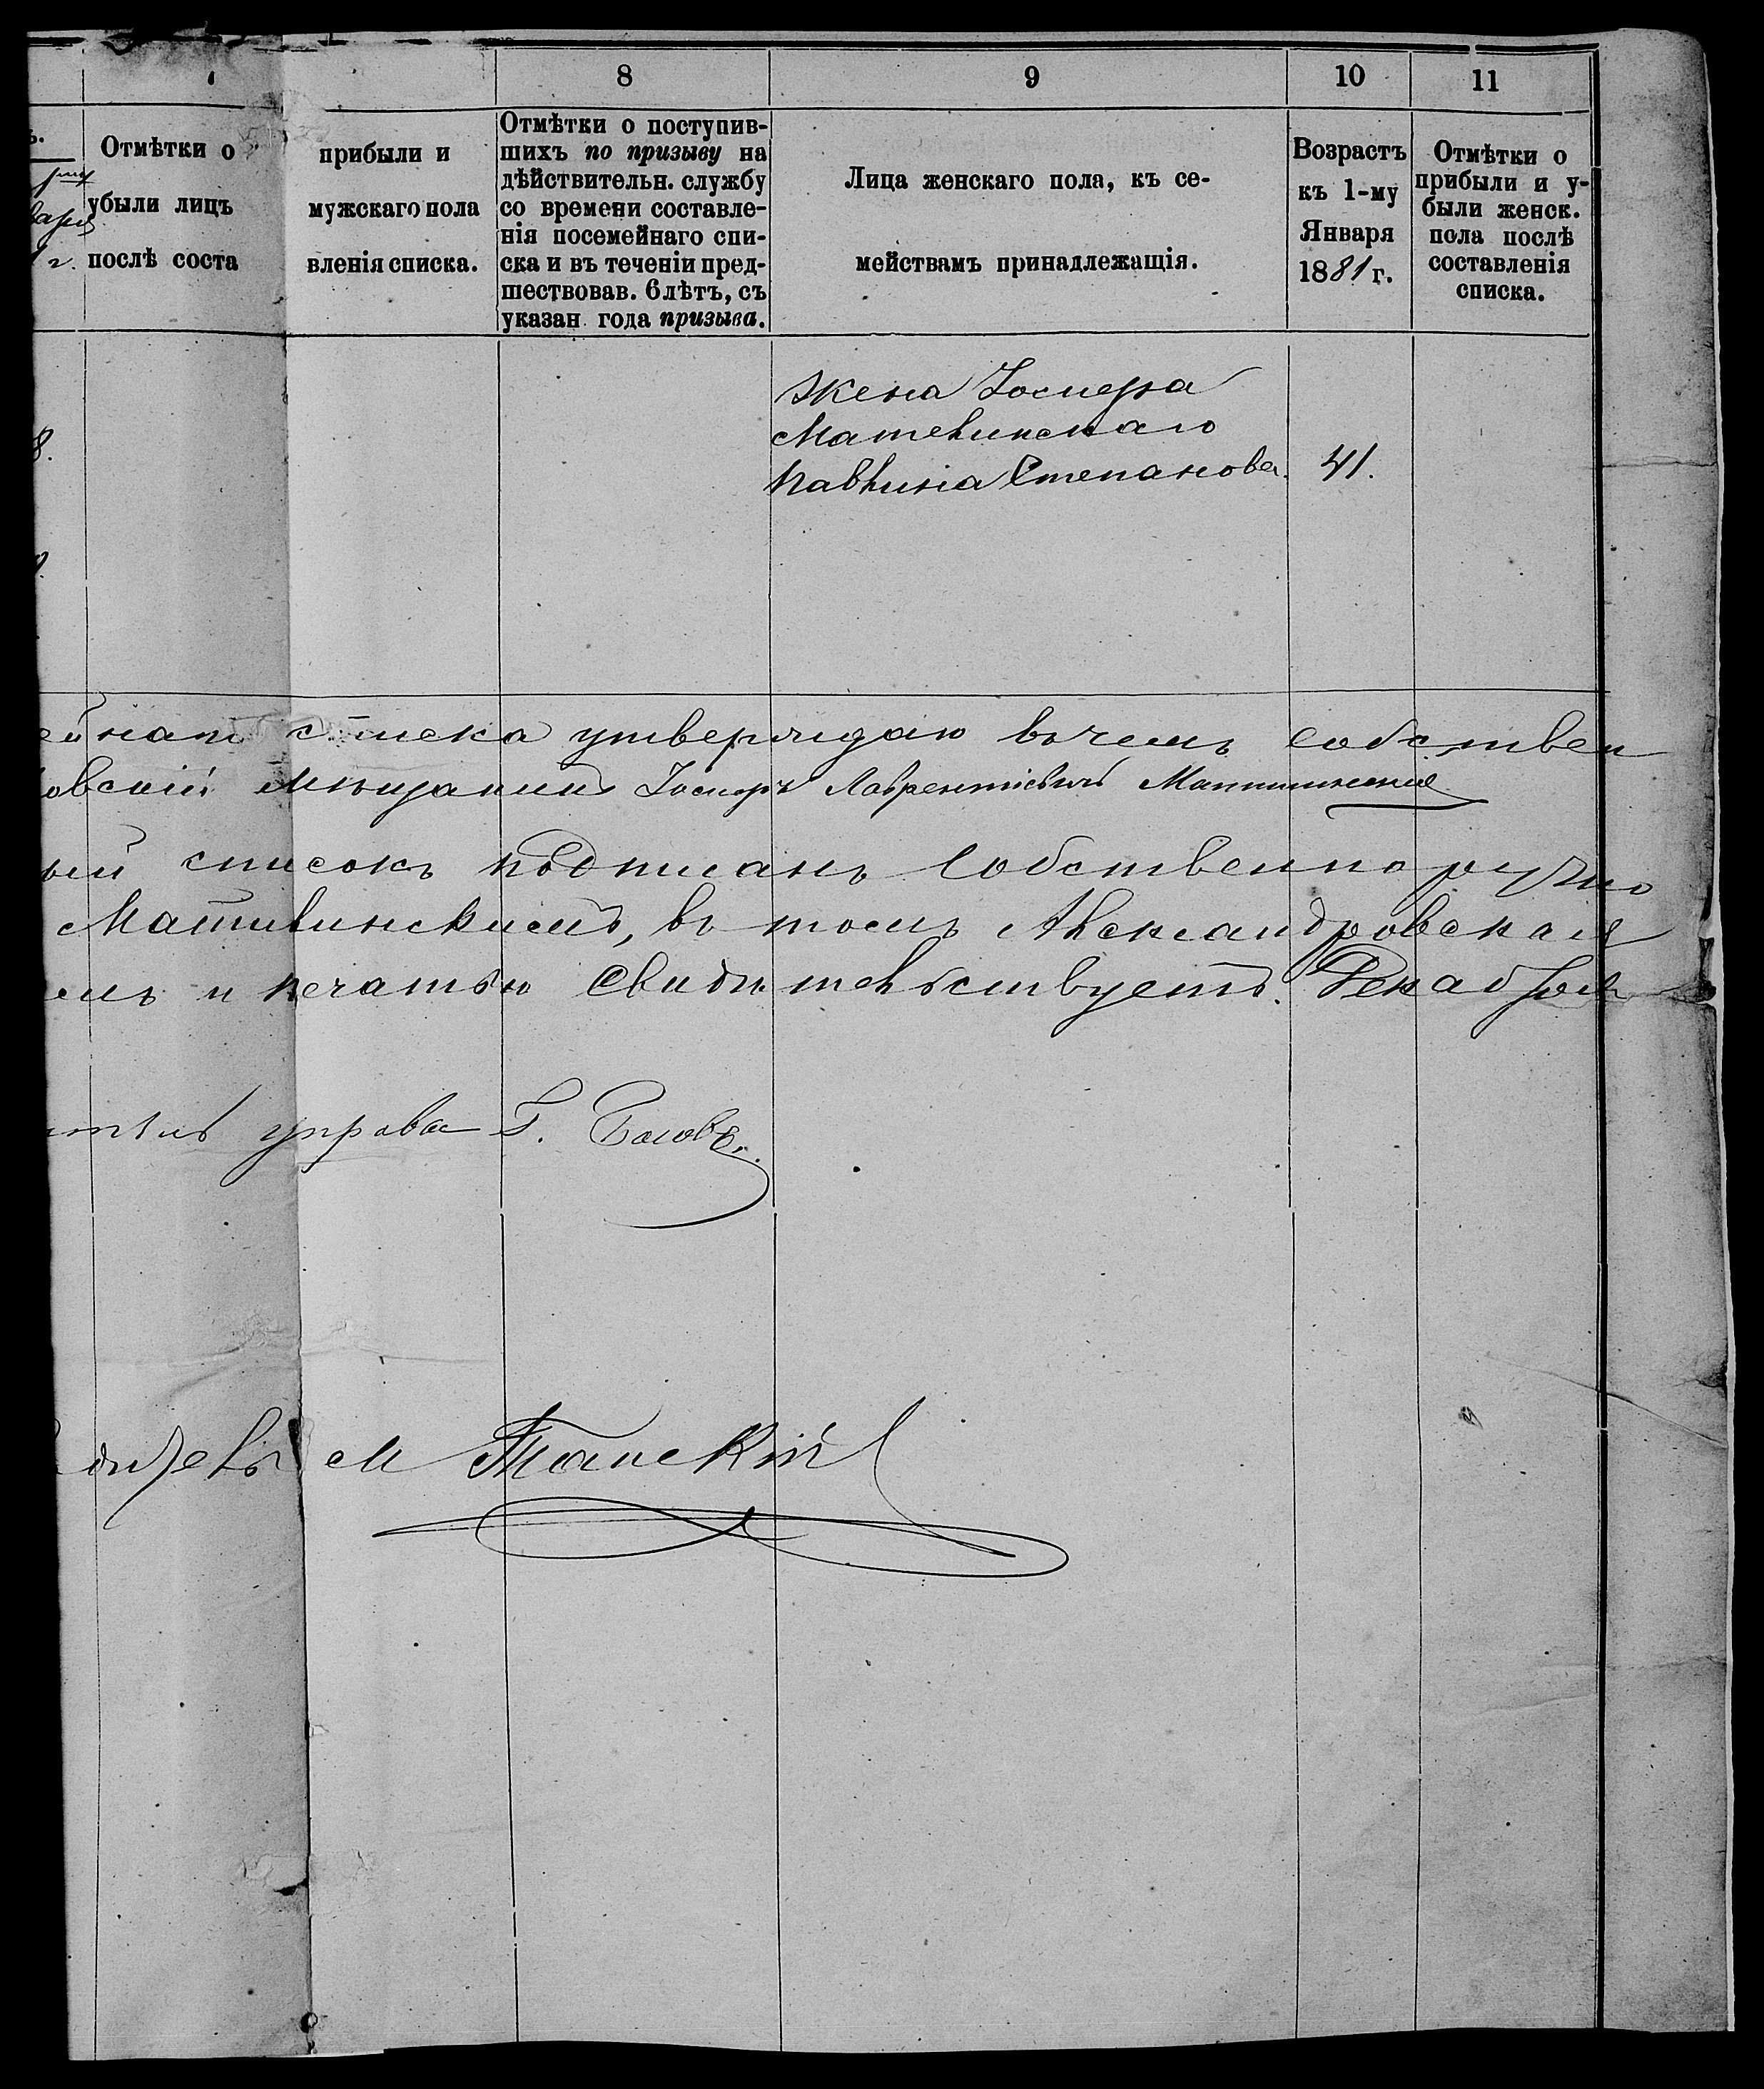 8 9 10 11
Отмѣтки о прибыли и
убыли лицъ мужскаго пола
послѣ соста вленія списка.
Отмѣтки о поступив-
шихъ по призыву на
дѣйствительн. службу
со времени составле-
нія посемейнаго спи-
ска и въ теченіи пред-
шествовав. 6 лѣтъ, съ
указан. года призыва.
Лица женскаго пола, къ се-
мействамъ принадлежащія.
Возрастъ
къ 1-му
Января
1881 г.
Отмѣтки о
прибыли и у-
были женск.
пола послѣ
составленія
списка.
Жена Іосифа
Мателинскаго
Павлина Степанова. 41.
списка утверждаю въ чемъ собствен
овскій мѣщанинъ Іосифъ Лаврентіевичъ
ый списокъ подписанъ собственноручно
въ томъ Александровская
емъ и печатью свидѣтельствуетъ. Декабря
управы Г.
М